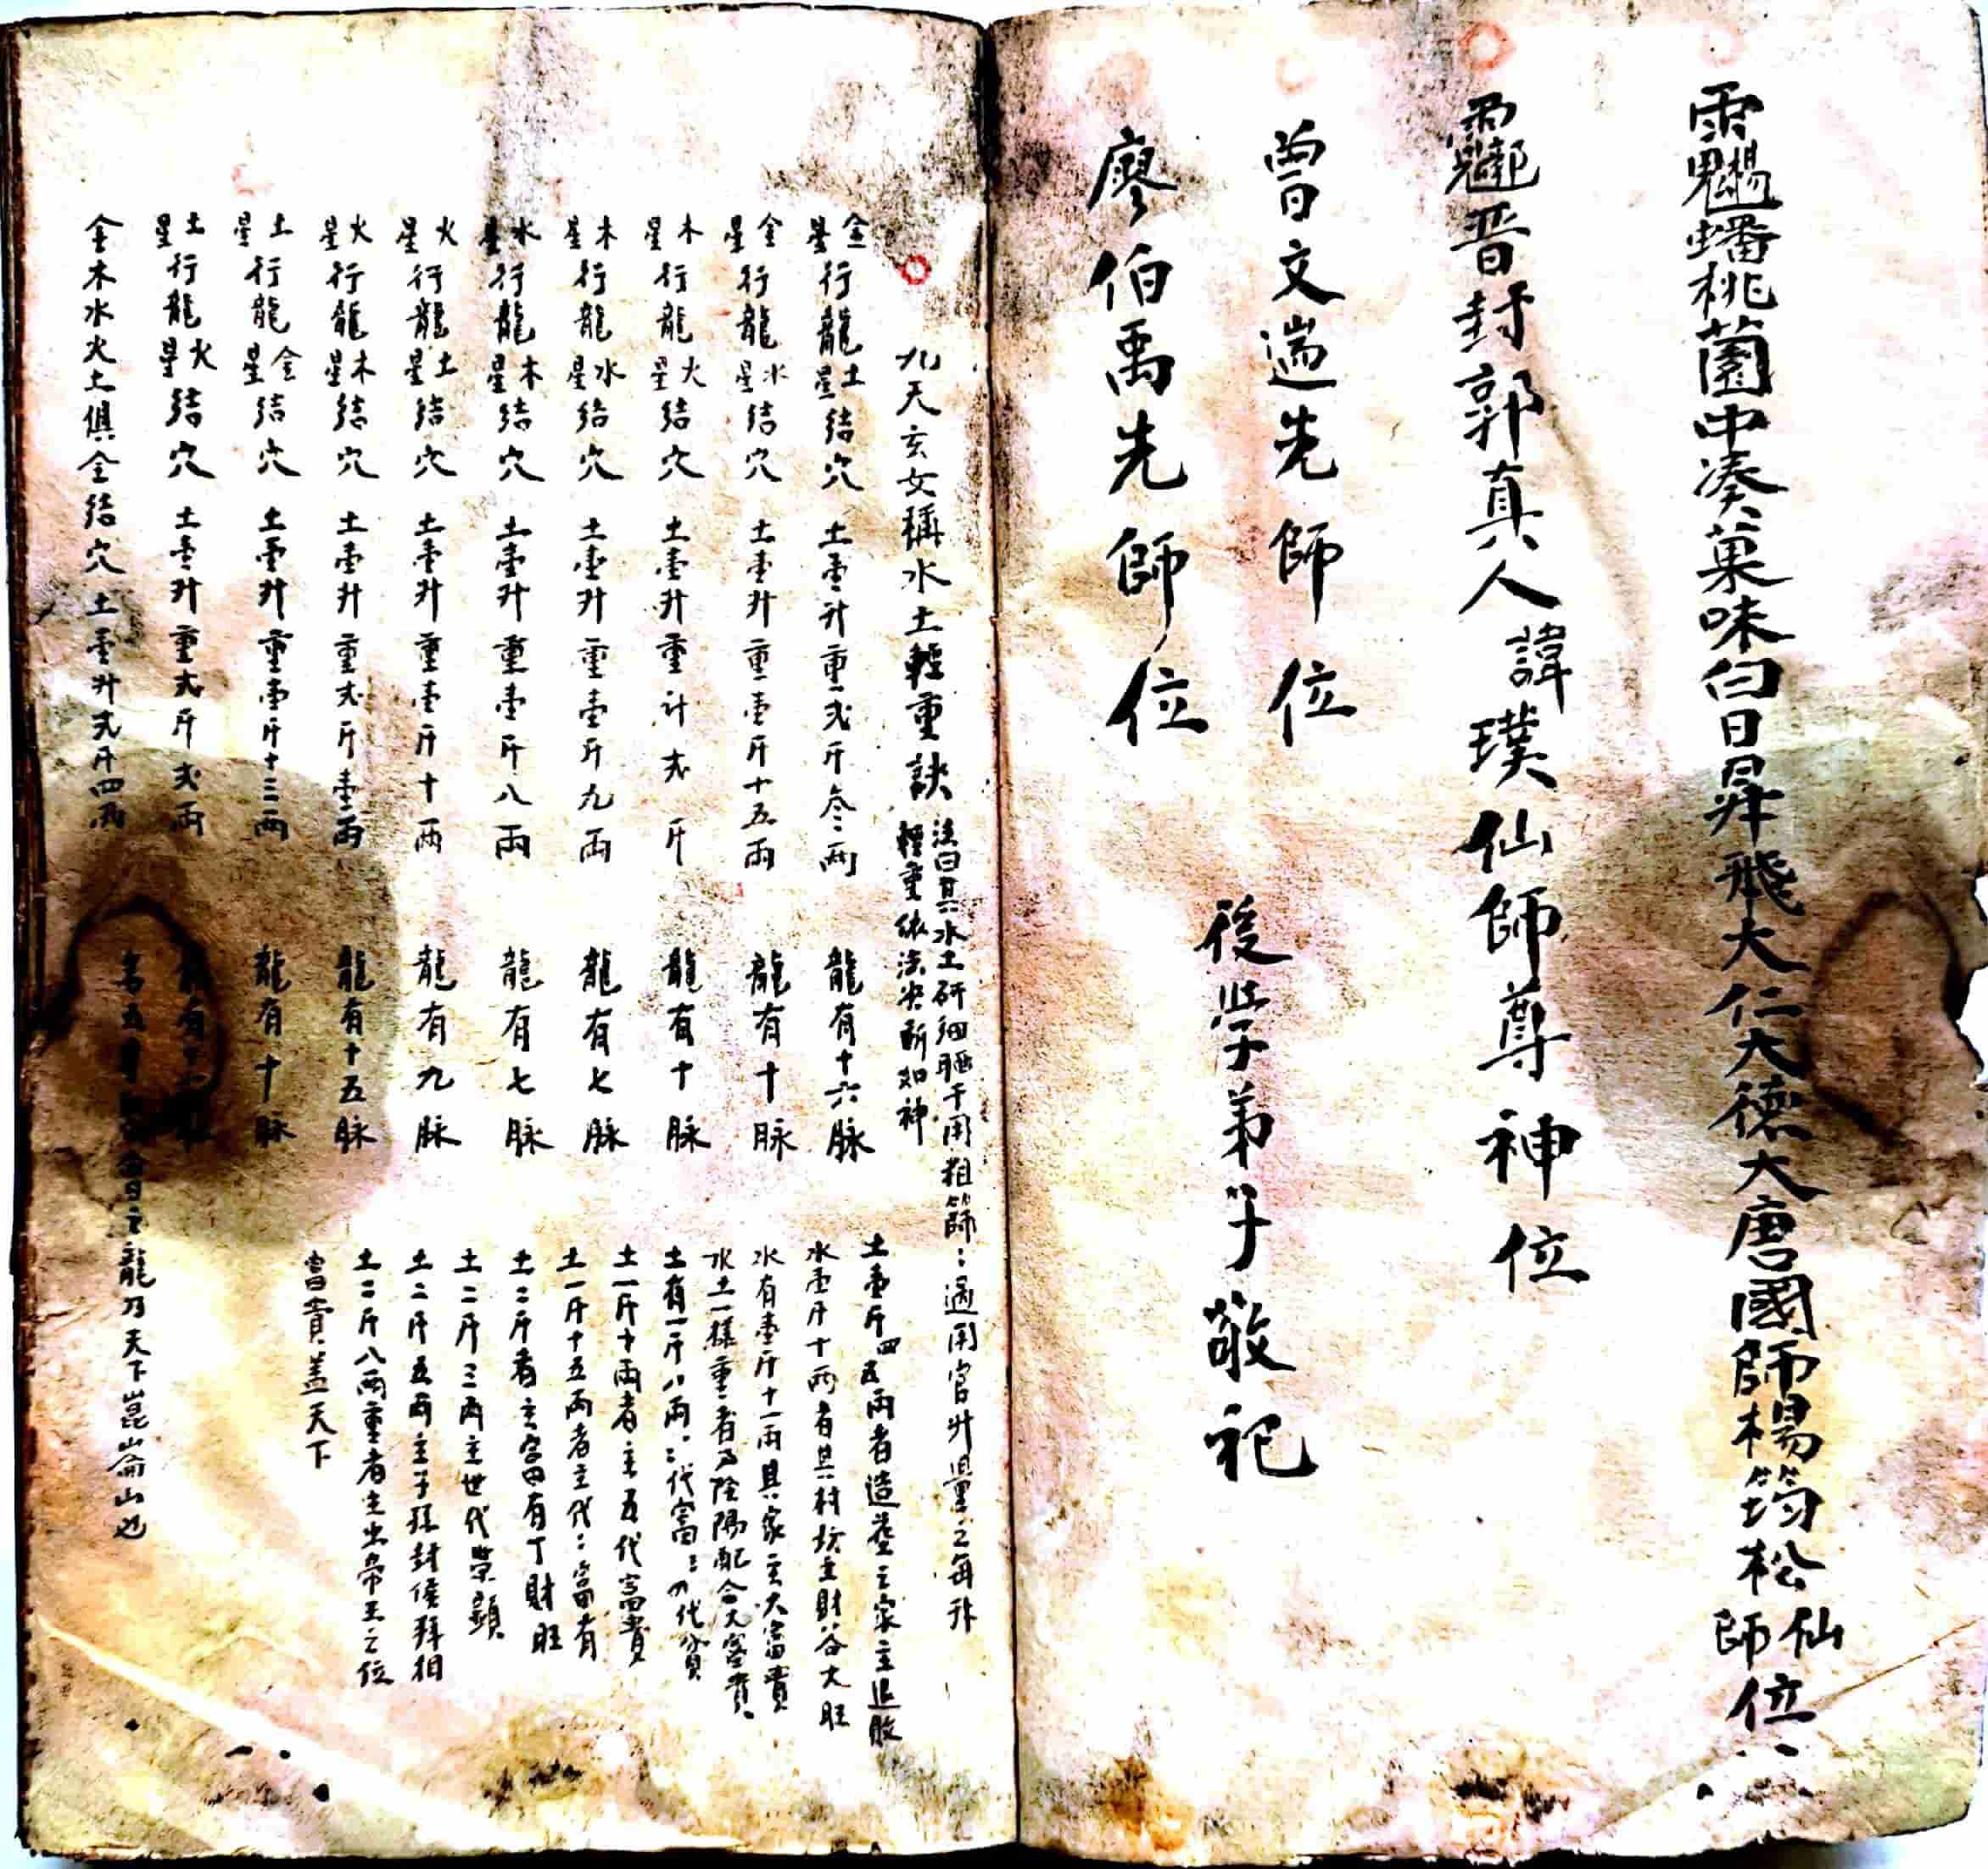 蟠桃園中凑菓味白日昇飛大仁大德大唐國師楊筠松仙師位
晋封郭真人諱璞仙師尊神位
曾文遄先師位
廖伯禹先師位
後學弟子敬祀
九天玄女稱水土輕重訣
法曰其水土研細晒干用粗篩：過用官升量之每升
輕重依法決斷如神
金星行龍土星結穴 土壹升重弍斤叁両 龍有十六脉
金星行龍水星結穴 土壹升重壹斤十五両 龍有十脉
木星行龍火星結穴 土壹升重计弍斤 龍有十脉
木星行龍水星結穴 土壹升重壹斤九両 龍有七脉
水星行龍木星結穴 土壹升重壹斤八両 龍有七脉
火星行龍土星結穴 土壹升重壹斤十両 龍有九脉
火星行龍木星結穴 土壹升重弍斤壹両 龍有十五脉
土星行龍金星結穴 土壹升重壹斤十三両 龍有十脉
土星行龍火星結穴 土壹升重弍斤弍両 龍有十脉
金木水火土俱全結穴 土壹升弍斤四両 龍乃天下崑崙山也
土壹斤四五両者造葬主家主退敗
水壹斤十両者其村坊主財谷大旺
水有壹斤十一両其家主大富貴
水土一樣重者乃陰陽配合大富貴
土有一斤八両：二代富：代貧
土一斤十両者主五代富貴
土一斤十五両者主代：富有
土二斤者主富田有丁財旺
土二斤三両主世代榮顯
土二斤五両主子孫封侯拜相
土二斤八両重者主出帝王之位
富貴盖天下